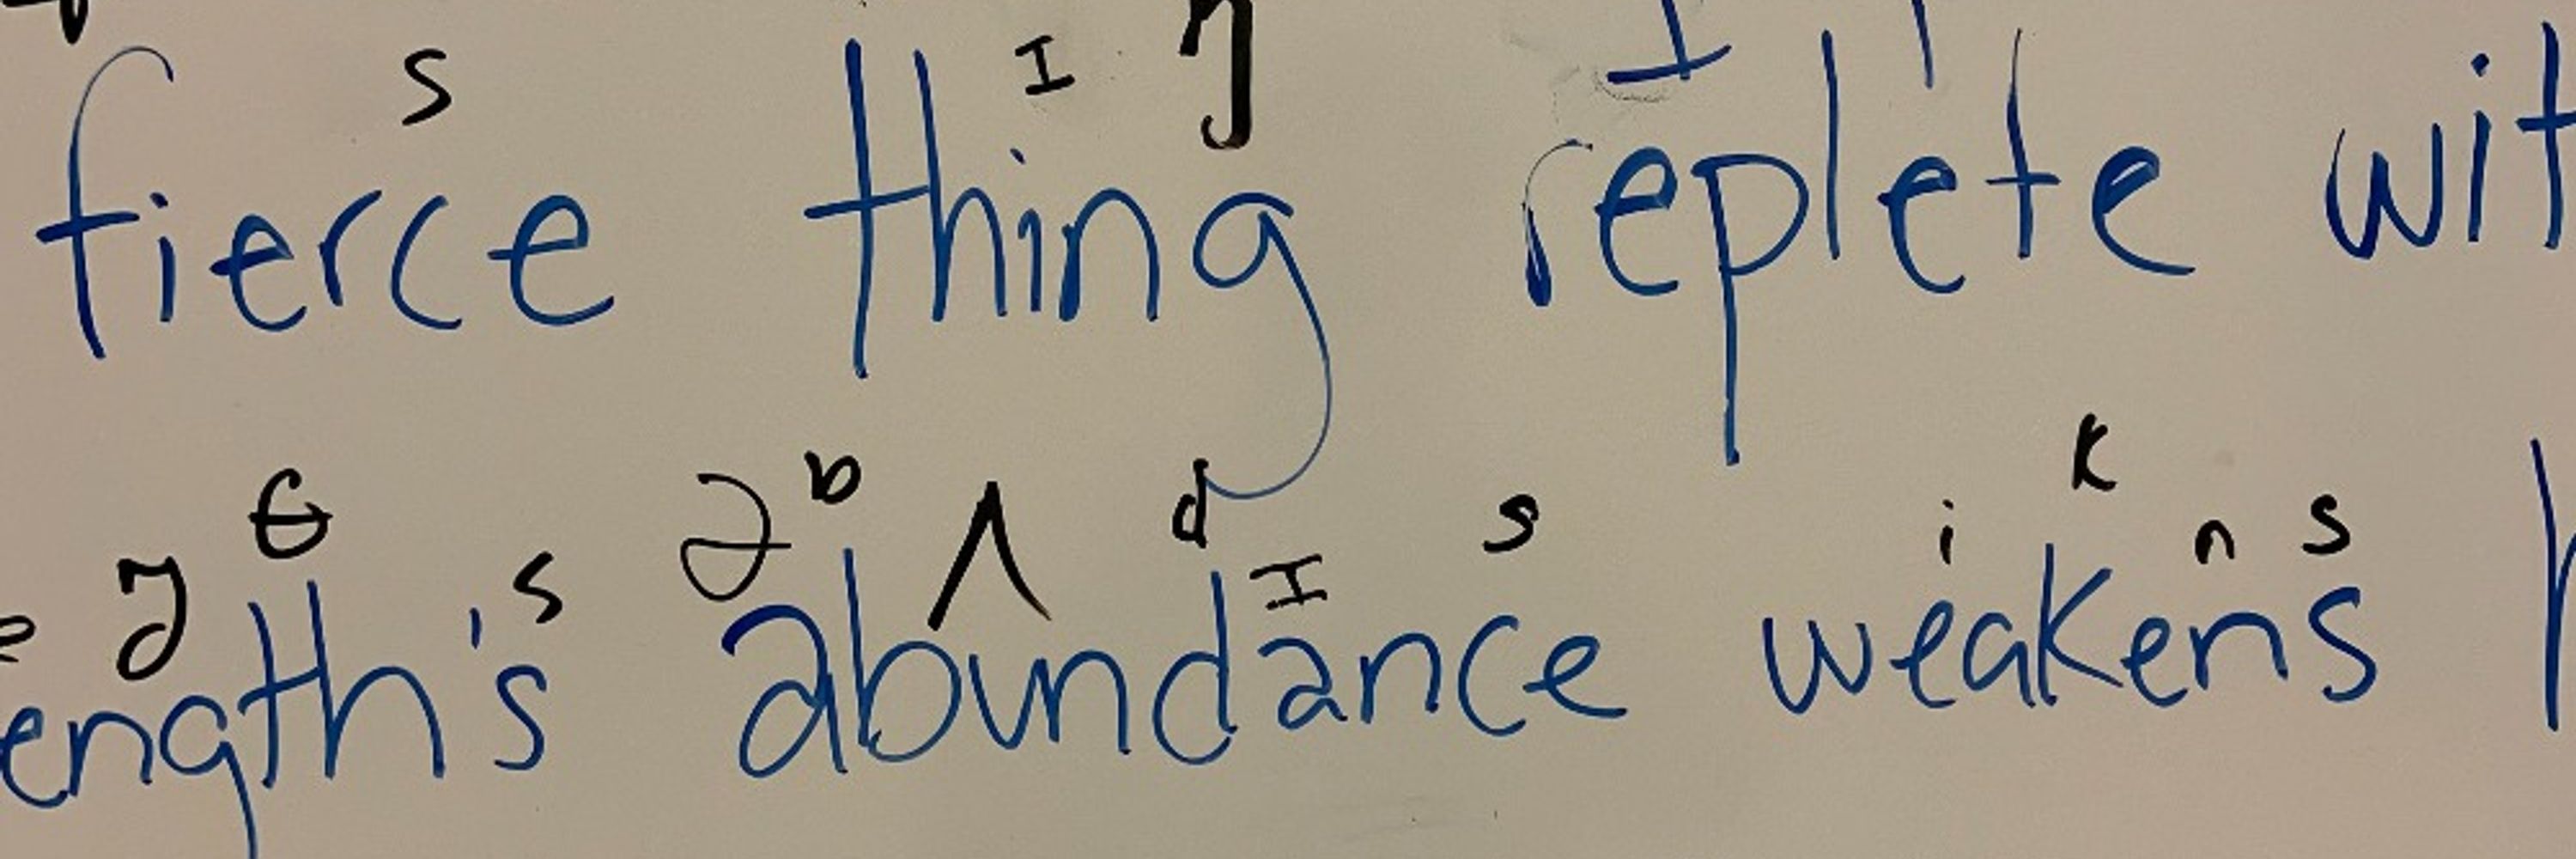 s I ŋ
fierce thing replete wit
e ŋ θ s ə b ʌ d I s i k n s
ength's abundance weakens